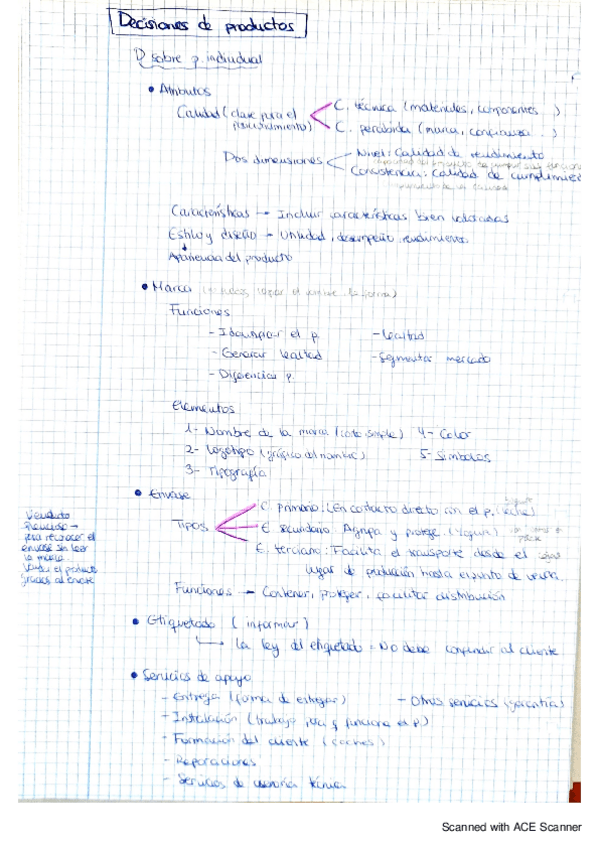 Decisiones de productos
D sobre p. individual
• Atributos
Calidad (clave para el posicionamiento)
C. técnica (materiales, componentes...)
C. percibida (marca, confianza...)
Dos dimensiones
Nivel: Calidad de rendimiento
Consistencia: Calidad de cumplimiento
Características → Incluir características bien valoradas
Estilo y diseño → Utilidad, desempeño, rendimiento
Apariencia del producto
• Marca
Funciones
- Identificar el p.
- Lealtad
- Generar lealtad
- Segmentar mercado
- Diferenciar p.
Elementos
1- Nombre de la marca (corto, simple)
4- Color
2- Logotipo (gráfico del nombre)
5- Símbolos
3- Tipografía
• Envase
Tipos
primario: En contacto directo con el p. (leche)
E. secundario: Agrupa y protege (yogur)
E. terciario: Facilita el transporte desde el
lugar de producción hasta el punto de venta.
Funciones → Contener, proteger, facilitar distribución
Vendedor
silencioso →
para reconocer el
envase sin leer
la marca.
el producto
gracias al envase
• Etiquetado (informar)
La ley del etiquetado = No debe confundir al cliente
• Servicios de apoyo
- Entrega (forma de entregar)
- Otros servicios (garantía)
- Instalación (trabajo para q funcione el p)
- Formación del cliente (coches)
- Reparaciones
- Servicios de asesoría técnica
Scanned with ACE Scanner